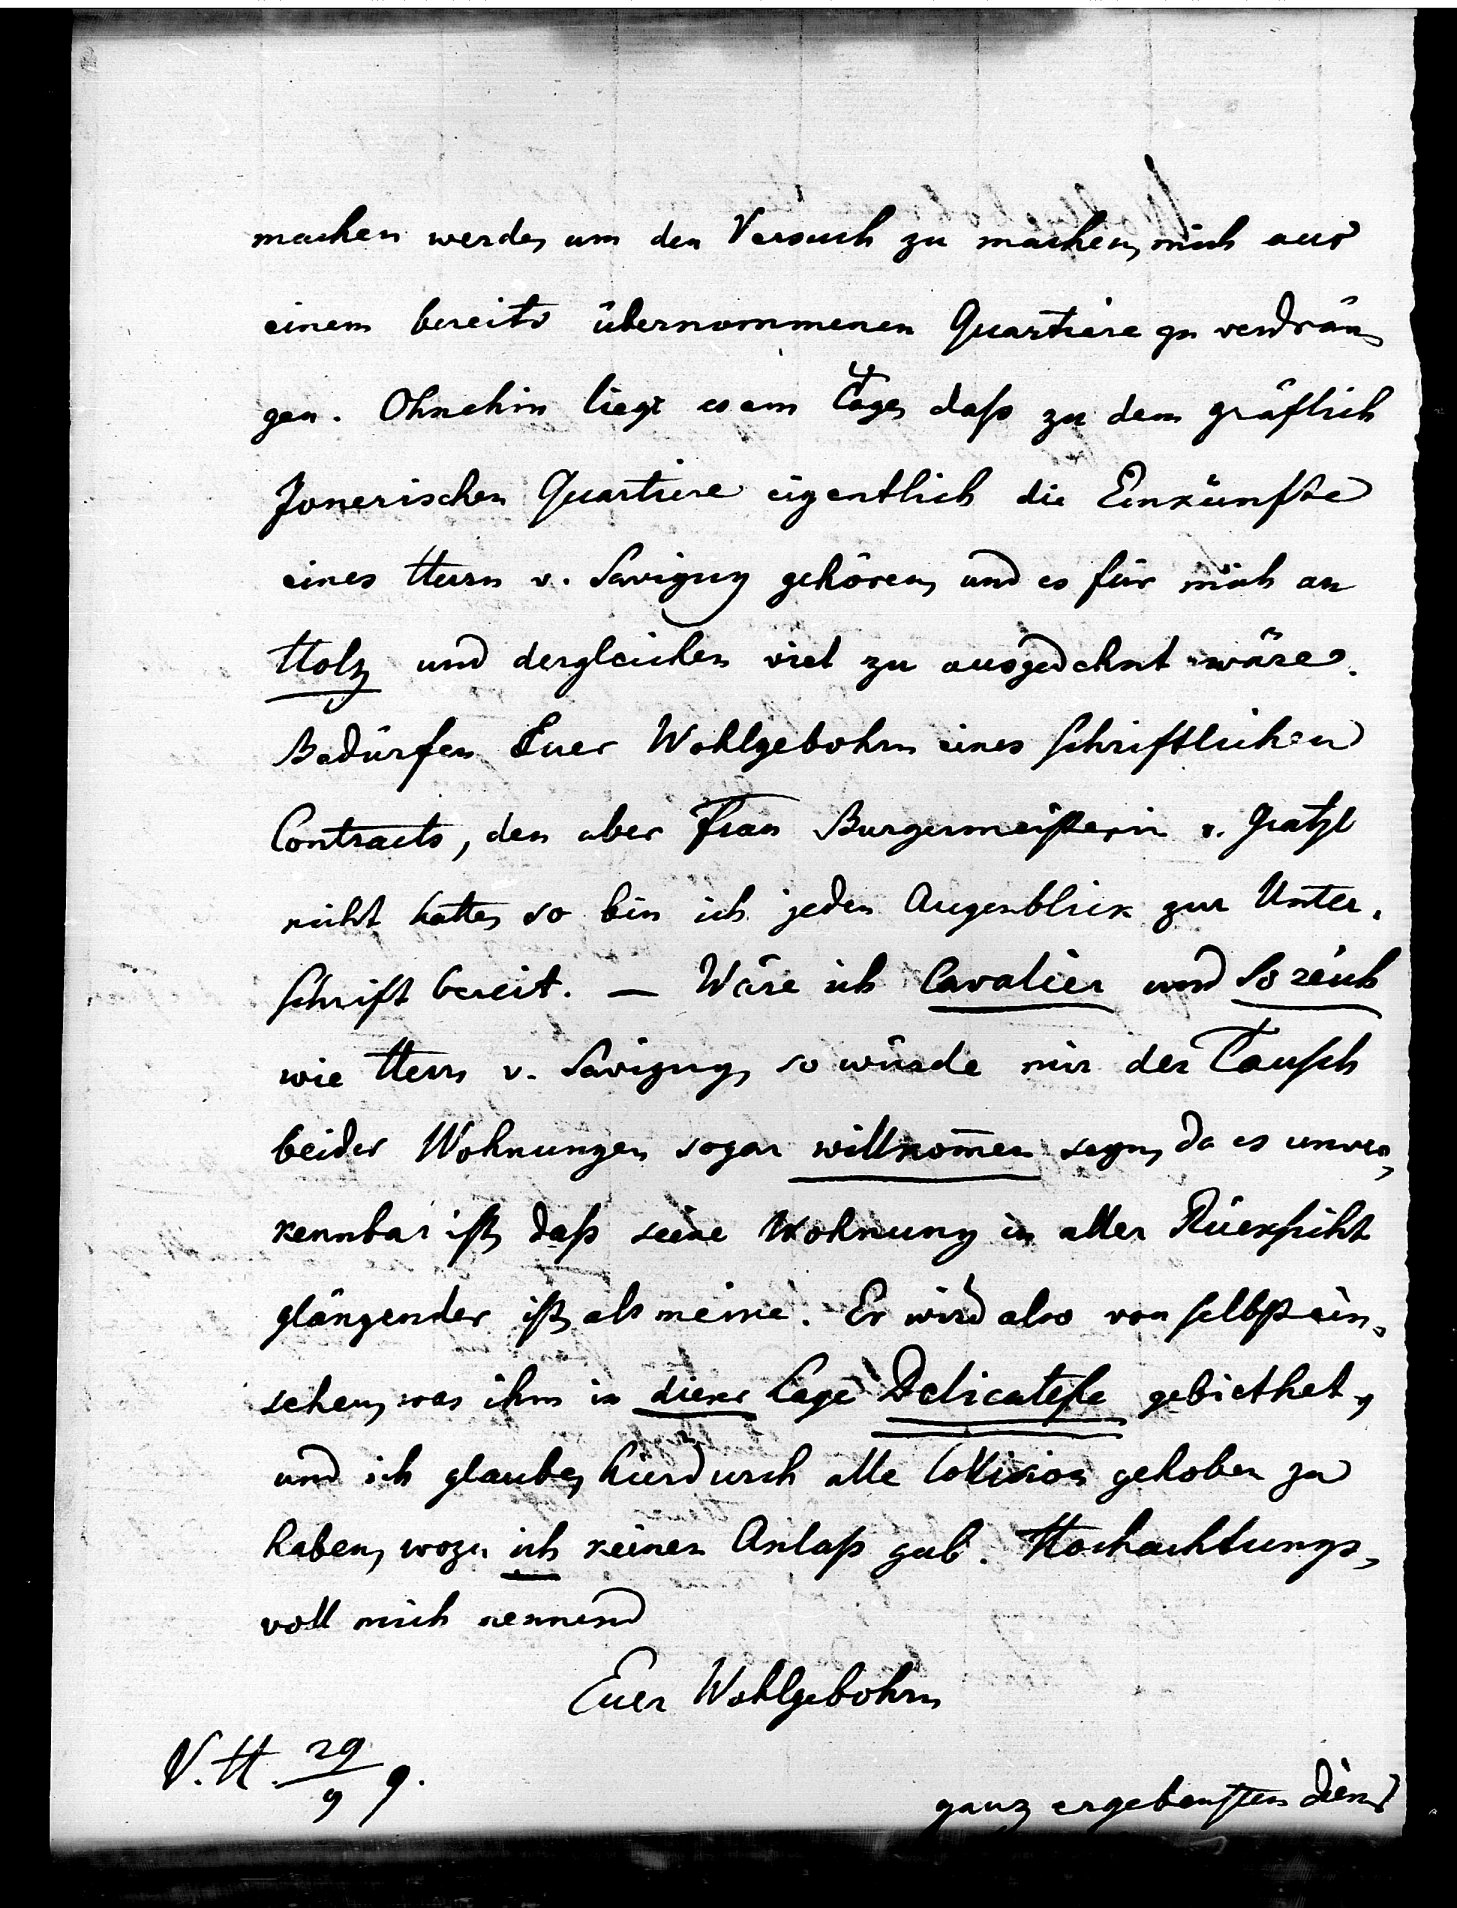 machen werde, um den Versuch zu machen, mich aus
einem bereits übernommenen Quartiere zu verdrän-
gen. Ohnehin liegt es am Tage, daß zu dem gräflich
Jonerischen Quartiere eigentlich die Einkünfte
eines Herrn v. Savigny gehören, und es für mich an
Holz und dergleichen viel zu ausgedehnt wäre.
Bedürfen Euer Wohlgebohrn eines schriftlichen
Contracts, den aber Frau Burgermeisterin v.
nicht hatte, so bin ich jeden Augenblick zur Unter-
schrift bereit. — Wäre ich Cavalier und so reich
wie Herr v. Savigny, so würde mir der Tausch
beider Wohnungen sogar willkom̅en seyn, da es unver-
kennbar ist, daß seine Wohnung in aller Rücksicht
glänzender ist, als meine. Er wird also von selbst ein-
sehen, was ihm in dieser Lage Delicatesse gebiethet,
und ich glaube, hierdurch alle Collision gehoben zu
haben, wozu ich keinen Anlaß gab. Hochachtungs-
voll mich nennend
Euer Wohlgebohrn
V. H. 29/9 9.
ganz ergebensten Dien